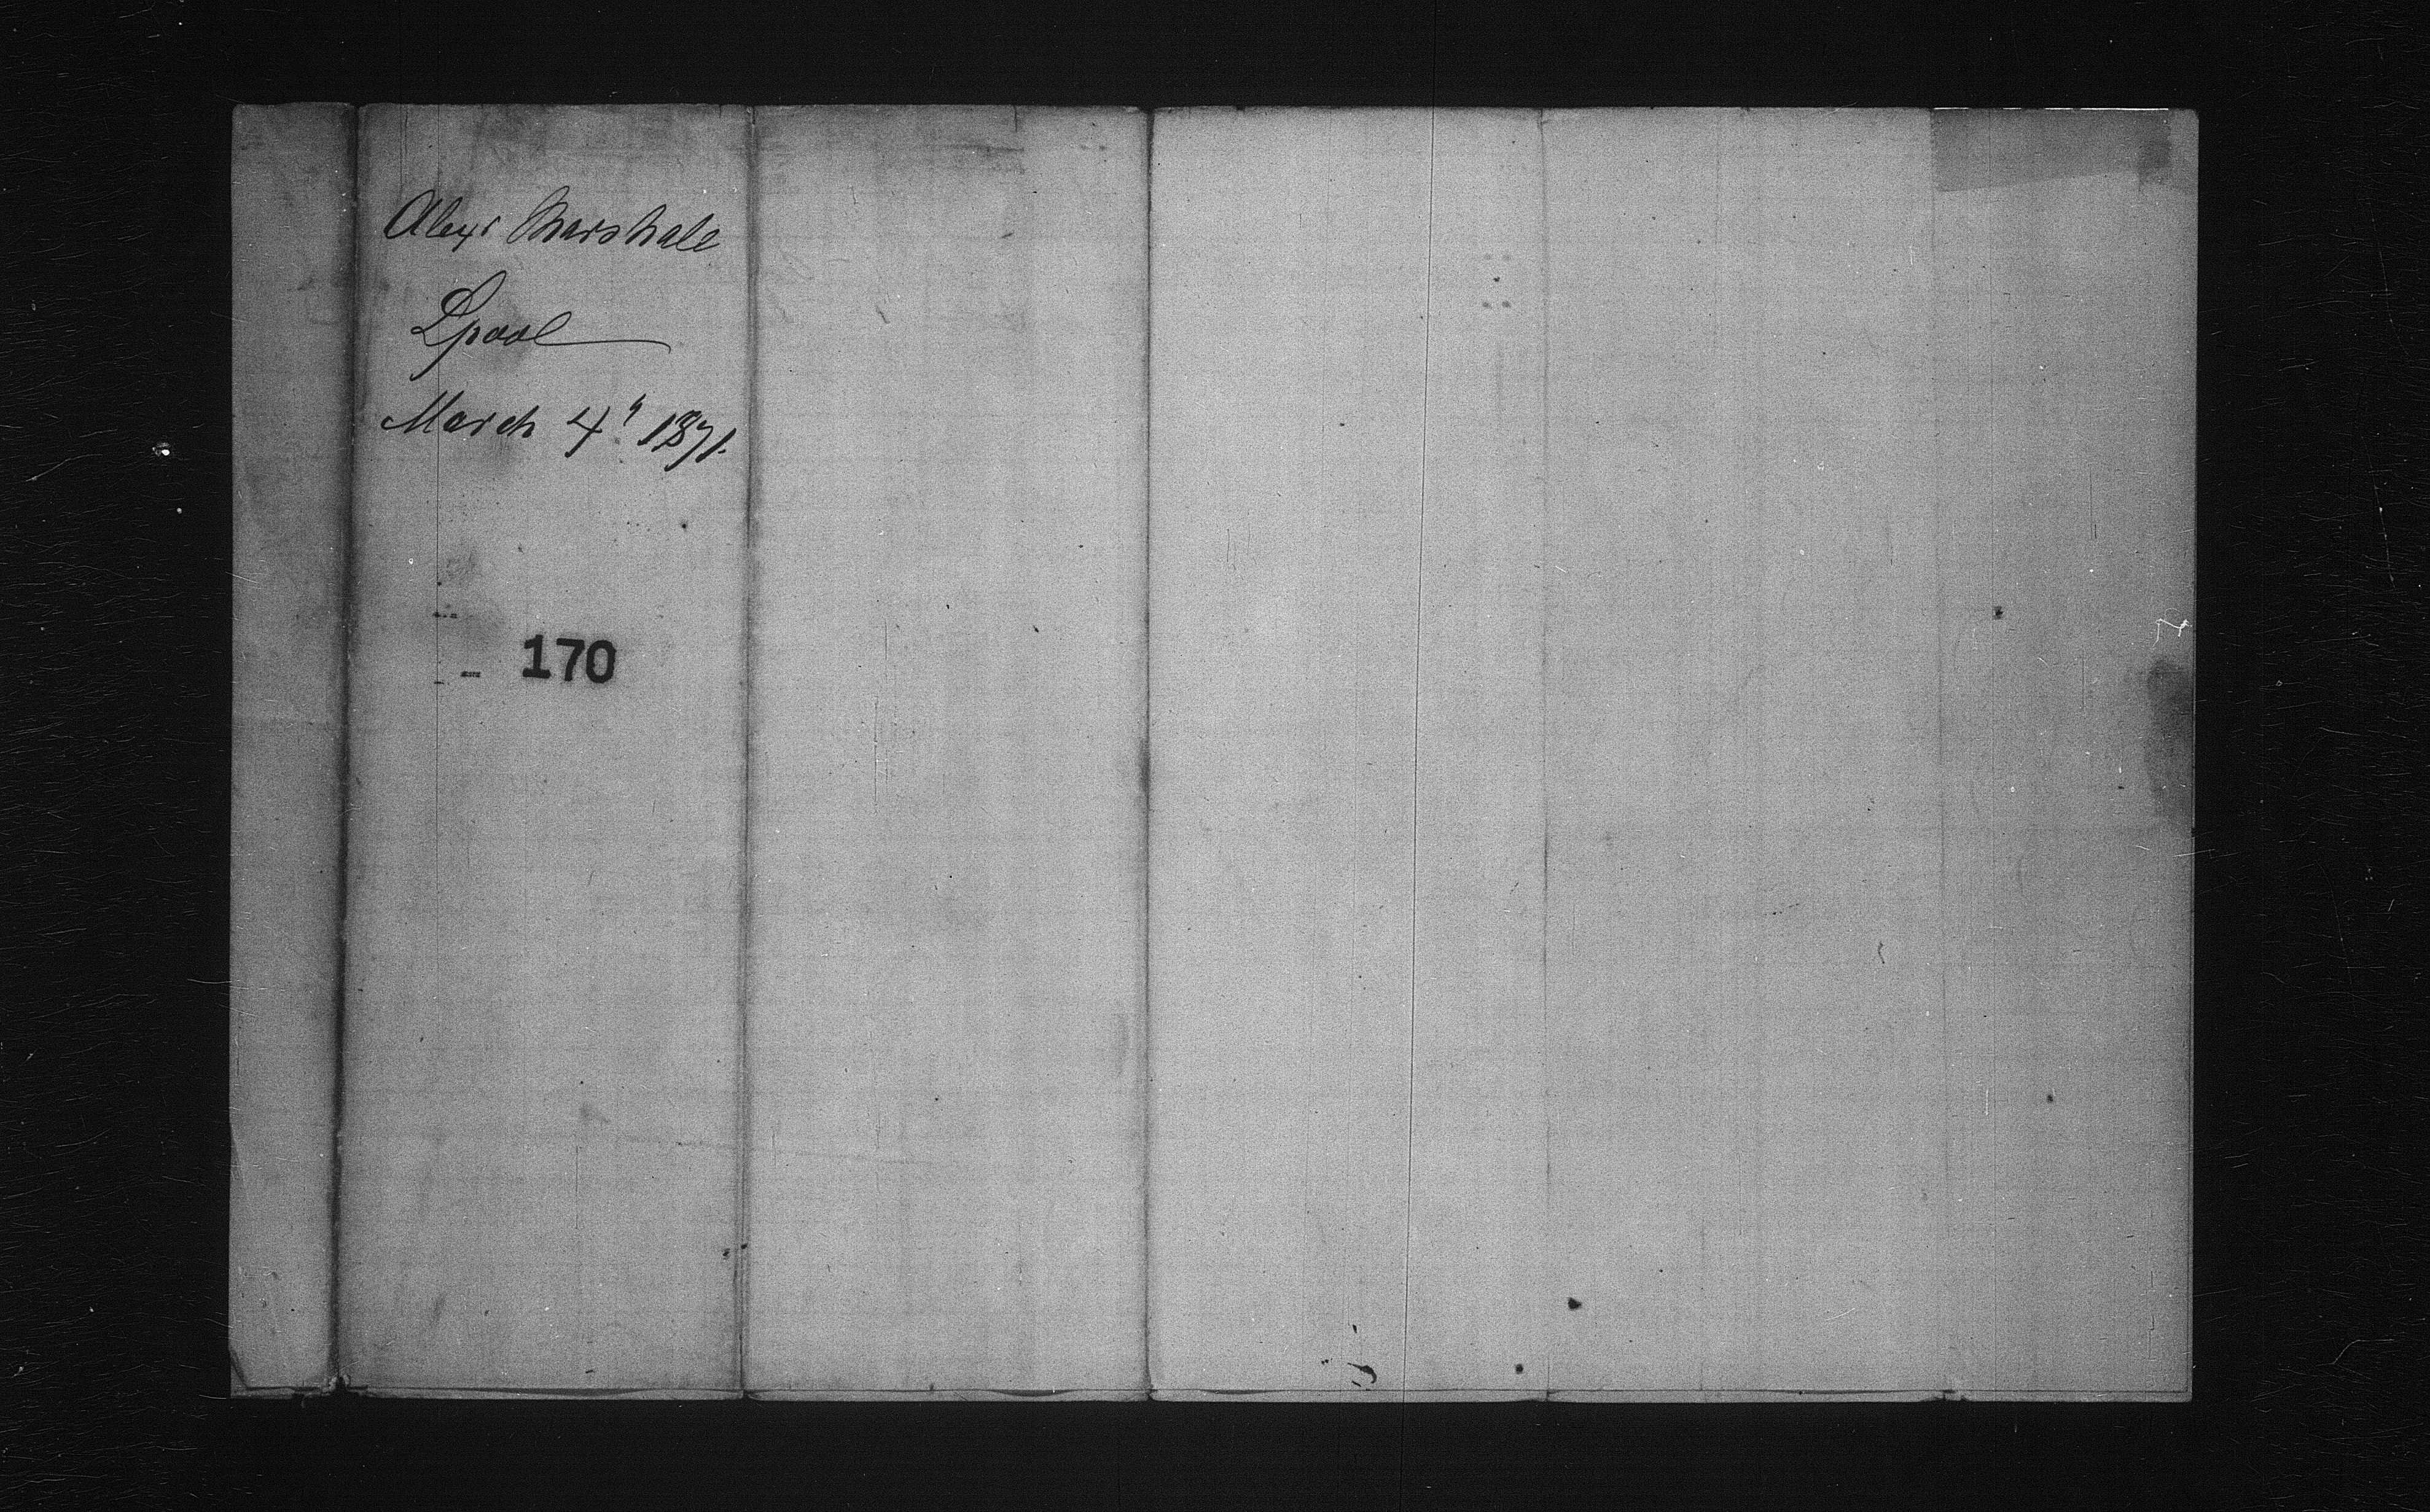 Alexr Marshall
Lpool
March 4h 1871.
170